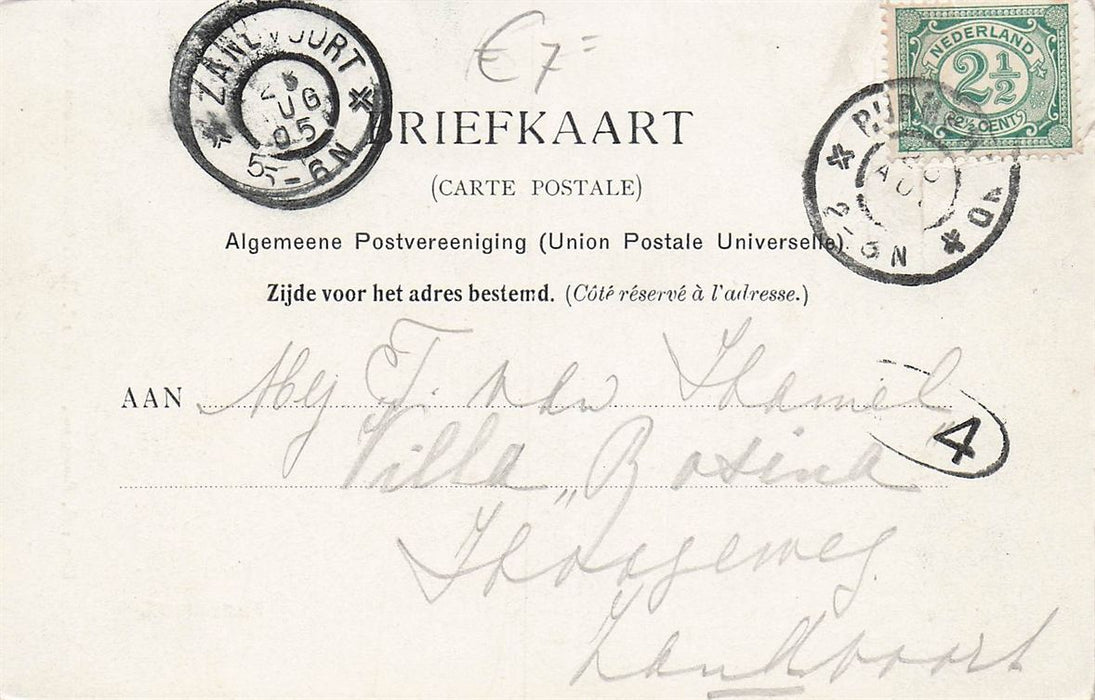 € 7=
NEDERLAND
2½
ZANDVOORT
AUG
05
5-6N
BRIEFKAART
(CARTE POSTALE)
Algemeene Postvereeniging (Union Postale Universelle).
Zijde voor het adres bestemd. (Côté réservé à l'adresse.)
AAN Mej T. van Hamel
4
Villa „Rosina
Hoogeweg
Zandvoort